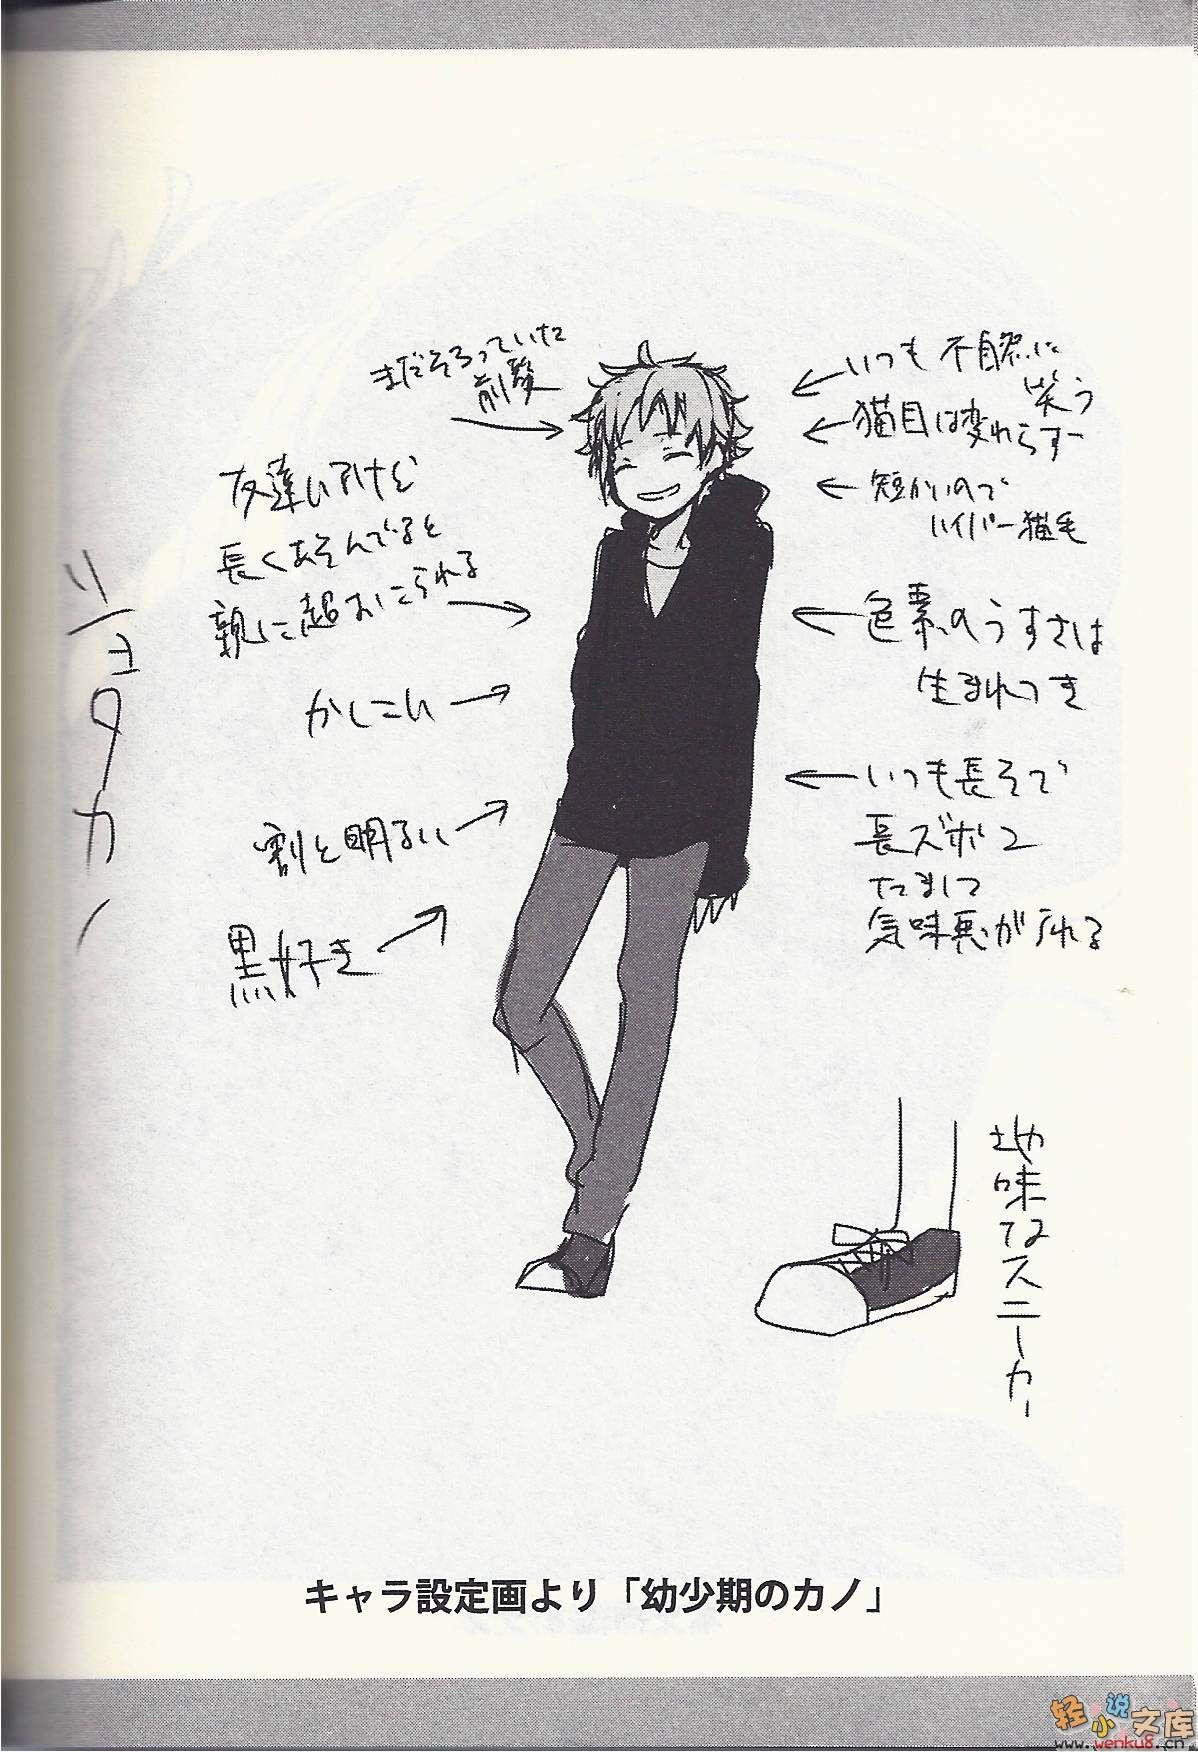 ショタカノ
まだそろっていた
前髪
友達いるけど
長くあそんでると
親に超おこられる
かしこい
割と明るい
黒好き
いつも不自然に
笑う
猫目は変わらずー
短かいので
ハイパー猫毛
色素のうすさは
生まれつき
いつも長そで
長ズボン
たまに
気味悪がられる
地味なスニーカー
キャラ設定画より「幼少期のカノ」
轻小说文库
www.wenku8.cn